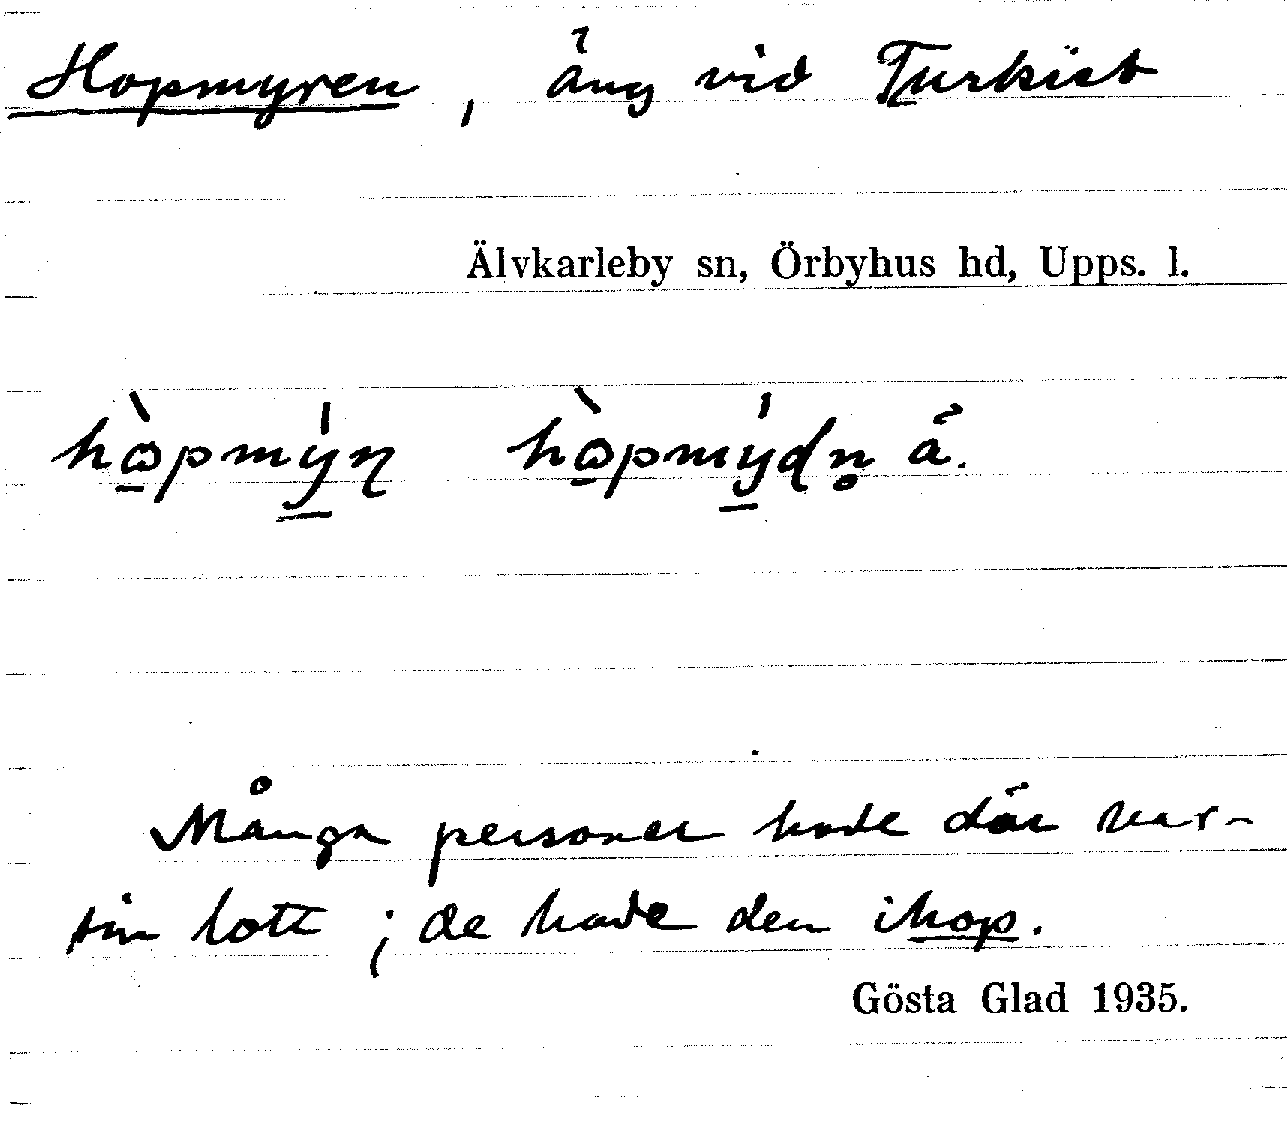 Hopmyren, äng vid Turkiet
Älvkarleby sn, Örbyhus hd, Upps. l.
Många personer hade där var-
sin lott; de hade den ihop.
Gösta Glad 1935.